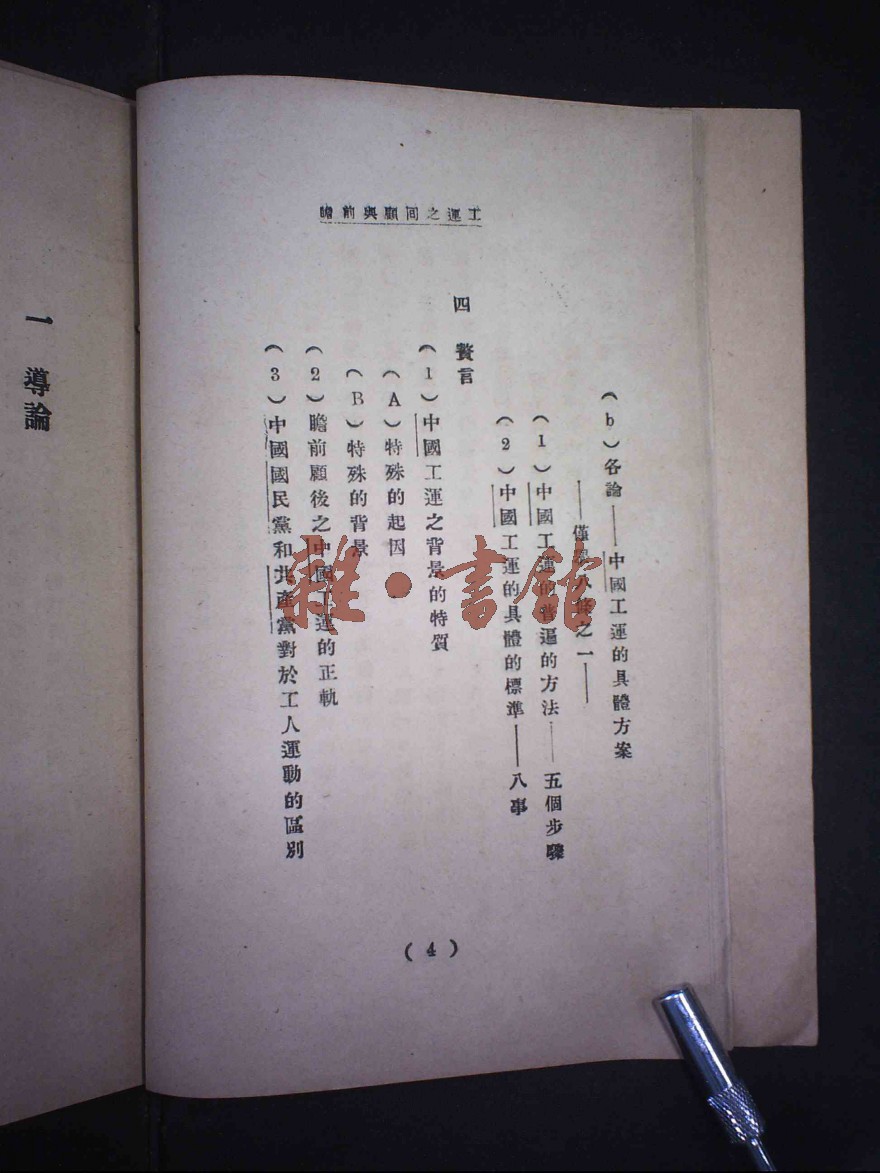 工運之回顧與前瞻
（b）各論——中國工運的具體方案
——僅 八 之一——
（1）中國工運的普遍的方法——五個步驟
（2）中國工運的具體的標準——八事
四 贅言
（1）中國工運之背景的特質
（A）特殊的起因
（B）特殊的背景
（2）瞻前顧後之中國工運的正軌
（3）中國國民黨和共產黨對於工人運動的區別
（4）
一 導論
雜·書館